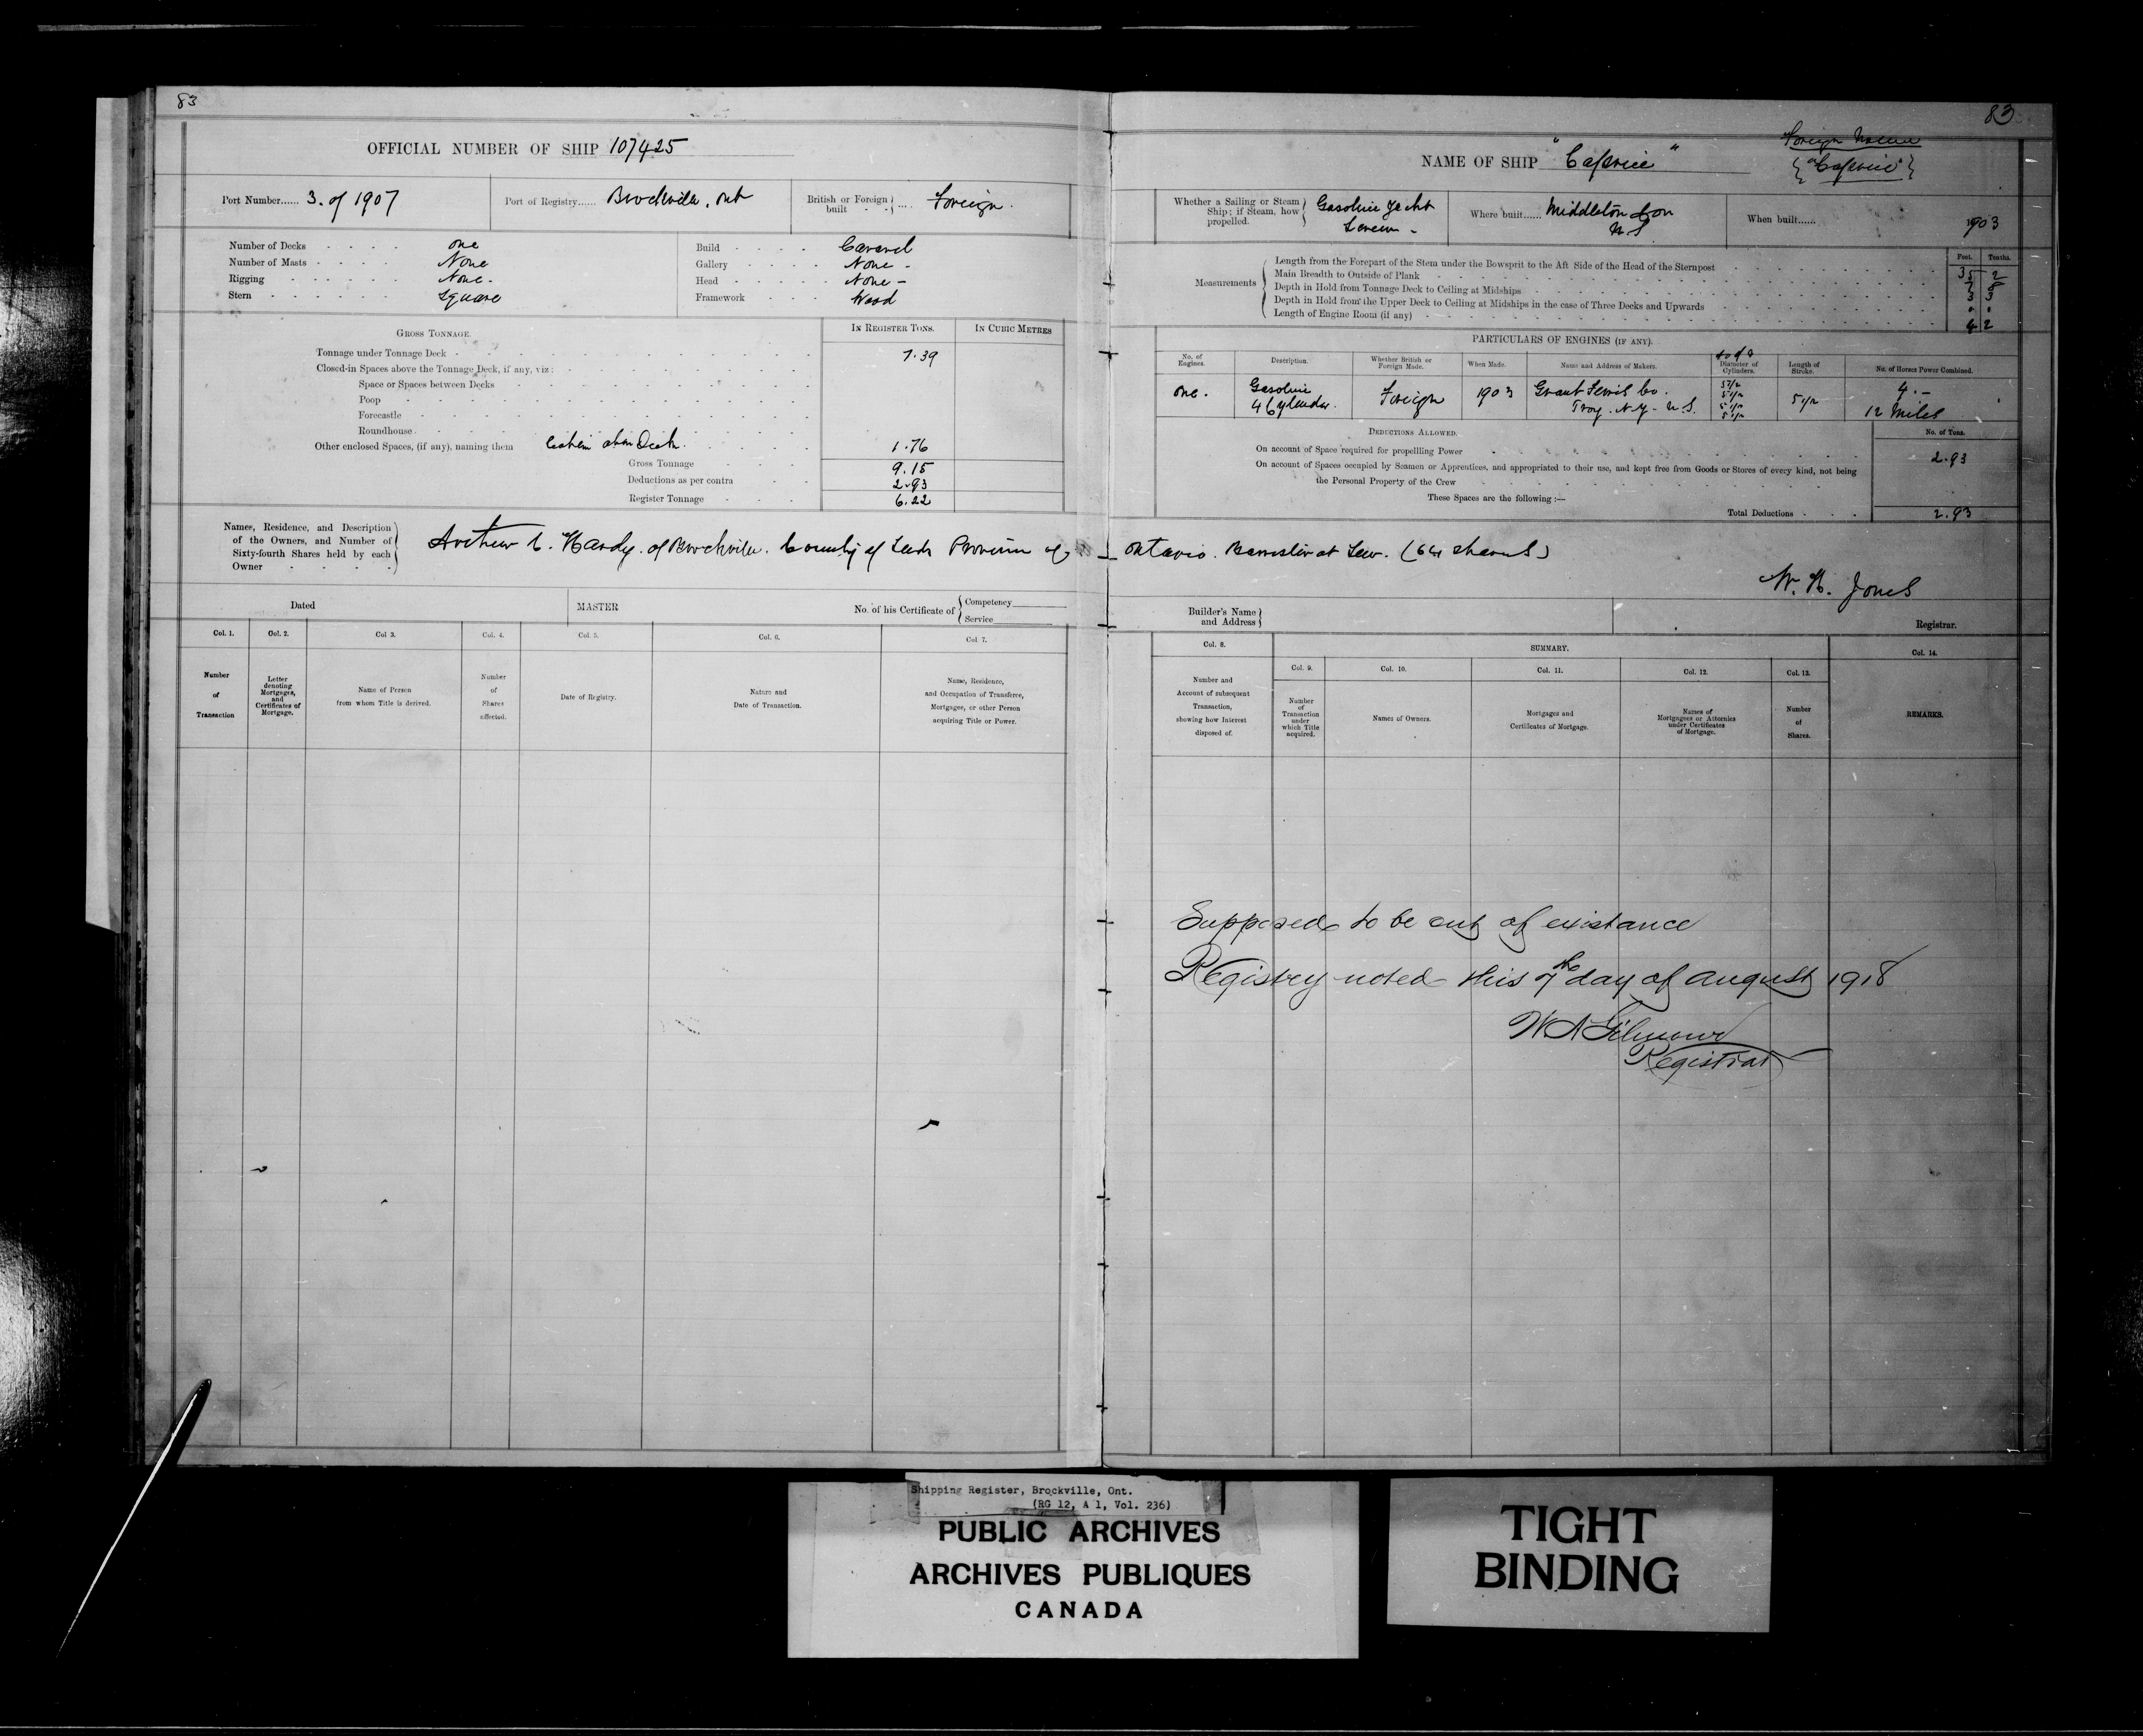 83
OFFICIAL NUMBER OF SHIP 107425
Port Number...... 3. of 1907
Port of Registry...... Brockville. Ont
British or Foreign built - - .... Foreign.
Number of Decks - - - - one
Number of Masts - - - - None
Rigging - - - - None.
Stern - - - - Square
Build - - - - Caravel
Gallery - - - - None -
Head - - - - None -
Framework - - - Wood
GROSS TONNAGE.
IN REGISTER TONS.
IN CUBIC METRES
Tonnage under Tonnage Deck - 7.39
Closed-in Spaces above the Tonnage Deck, if any, viz:
Space or Spaces between Decks
Poop
Forecastle
Roundhouse
Other enclosed Spaces, (if any), naming them Cabin above Deck. 1.76
Gross Tonnage 9.15
Deductions as per contra 2.93
Register Tonnage 6.22
Names, Residence, and Description
of the Owners, and Number of
Sixty-fourth Shares held by each
Owner
Arthur C. Hardy. of Brockville. County of Leeds Province of
Dated
MASTER
No. of his Certificate of { Competency
Service
Col. 1.
Col. 2.
Col 3.
Col. 4.
Col. 5.
Col. 6.
Col 7.
Number
of
Transaction
Letter
denoting
Mortgages,
and
Certificates of
Mortgage.
Name of Person
from whom Title is derived.
Number
of
Shares
affected.
Date of Registry.
Nature and
Date of Transaction.
Name, Residence,
and Occupation of Transferee,
Mortgages, or other Person
acquiring Title or Power.
83
NAME OF SHIP "Caprice"
Foreign Name
{"Caprice"}
Whether a Sailing or Steam
Ship; if Steam, how
propelled.
Gasoline Yacht
Screw -
Where built...... Middleton
When built...... 1903
Measurements
Feet. Tenths.
Length from the Forepart of the Stem under the Bowsprit to the Aft Side of the Head of the Sternpost 35 2
Main Breadth to Outside of Plank
Depth in Hold from Tonnage Deck to Ceiling at Midships 3 3
Depth in Hold from the Upper Deck to Ceiling at Midships in the case of Three Decks and Upwards
Length of Engine Room (if any) 4 2
PARTICULARS OF ENGINES (IF ANY).
No. of
Engines.
Description.
Whether British or
Foreign Made.
When Made.
Name and Address of Makers.
Diameter of
Cylinders.
Length of
Stroke.
No. of Horses Power Combined.
one.
Gasoline
4 Cylinder.
Foreign
1903
Grant Ferris Co.
Troy. N.Y. U.S.
5 1/2
5 1/2
5 1/2
5 1/2
5 1/2
4. -
12 Miles
DEDUCTIONS ALLOWED.
No. of Tons.
On account of Space required for propellling Power 2.93
On account of Spaces occupied by Seamen or Apprentices, and appropriated to their use, and kept free from Goods or Stores of every kind, not being
the Personal Property of the Crew
These Spaces are the following :—
Total Deductions 2.93
Ontario. Barrister at Law. (64 shares)
W. H. Jones
Registrar.
Builder's Name
and Address
Col. 8.
SUMMARY.
Col. 14.
Col. 9.
Col. 10.
Col. 11.
Col. 12.
Col. 13.
Number and
Account of subsequent
Transaction,
showing how Interest
disposed of.
Number
of
Transaction
under
which Title
acquired.
Names of Owners.
Mortgages and
Certificates of Mortgage.
Names of
Mortgagees or Attornies
under Certificates
of Mortgage.
Number
of
Shares.
REMARKS.
Supposed to be out of existance
Registry noted this 7th day of August 1918
W A Gilmour
Registrar
Shipping Register, Brockville, Ont.
(RG 12, A 1, Vol. 236)
PUBLIC ARCHIVES
ARCHIVES PUBLIQUES
CANADA
TIGHT
BINDING